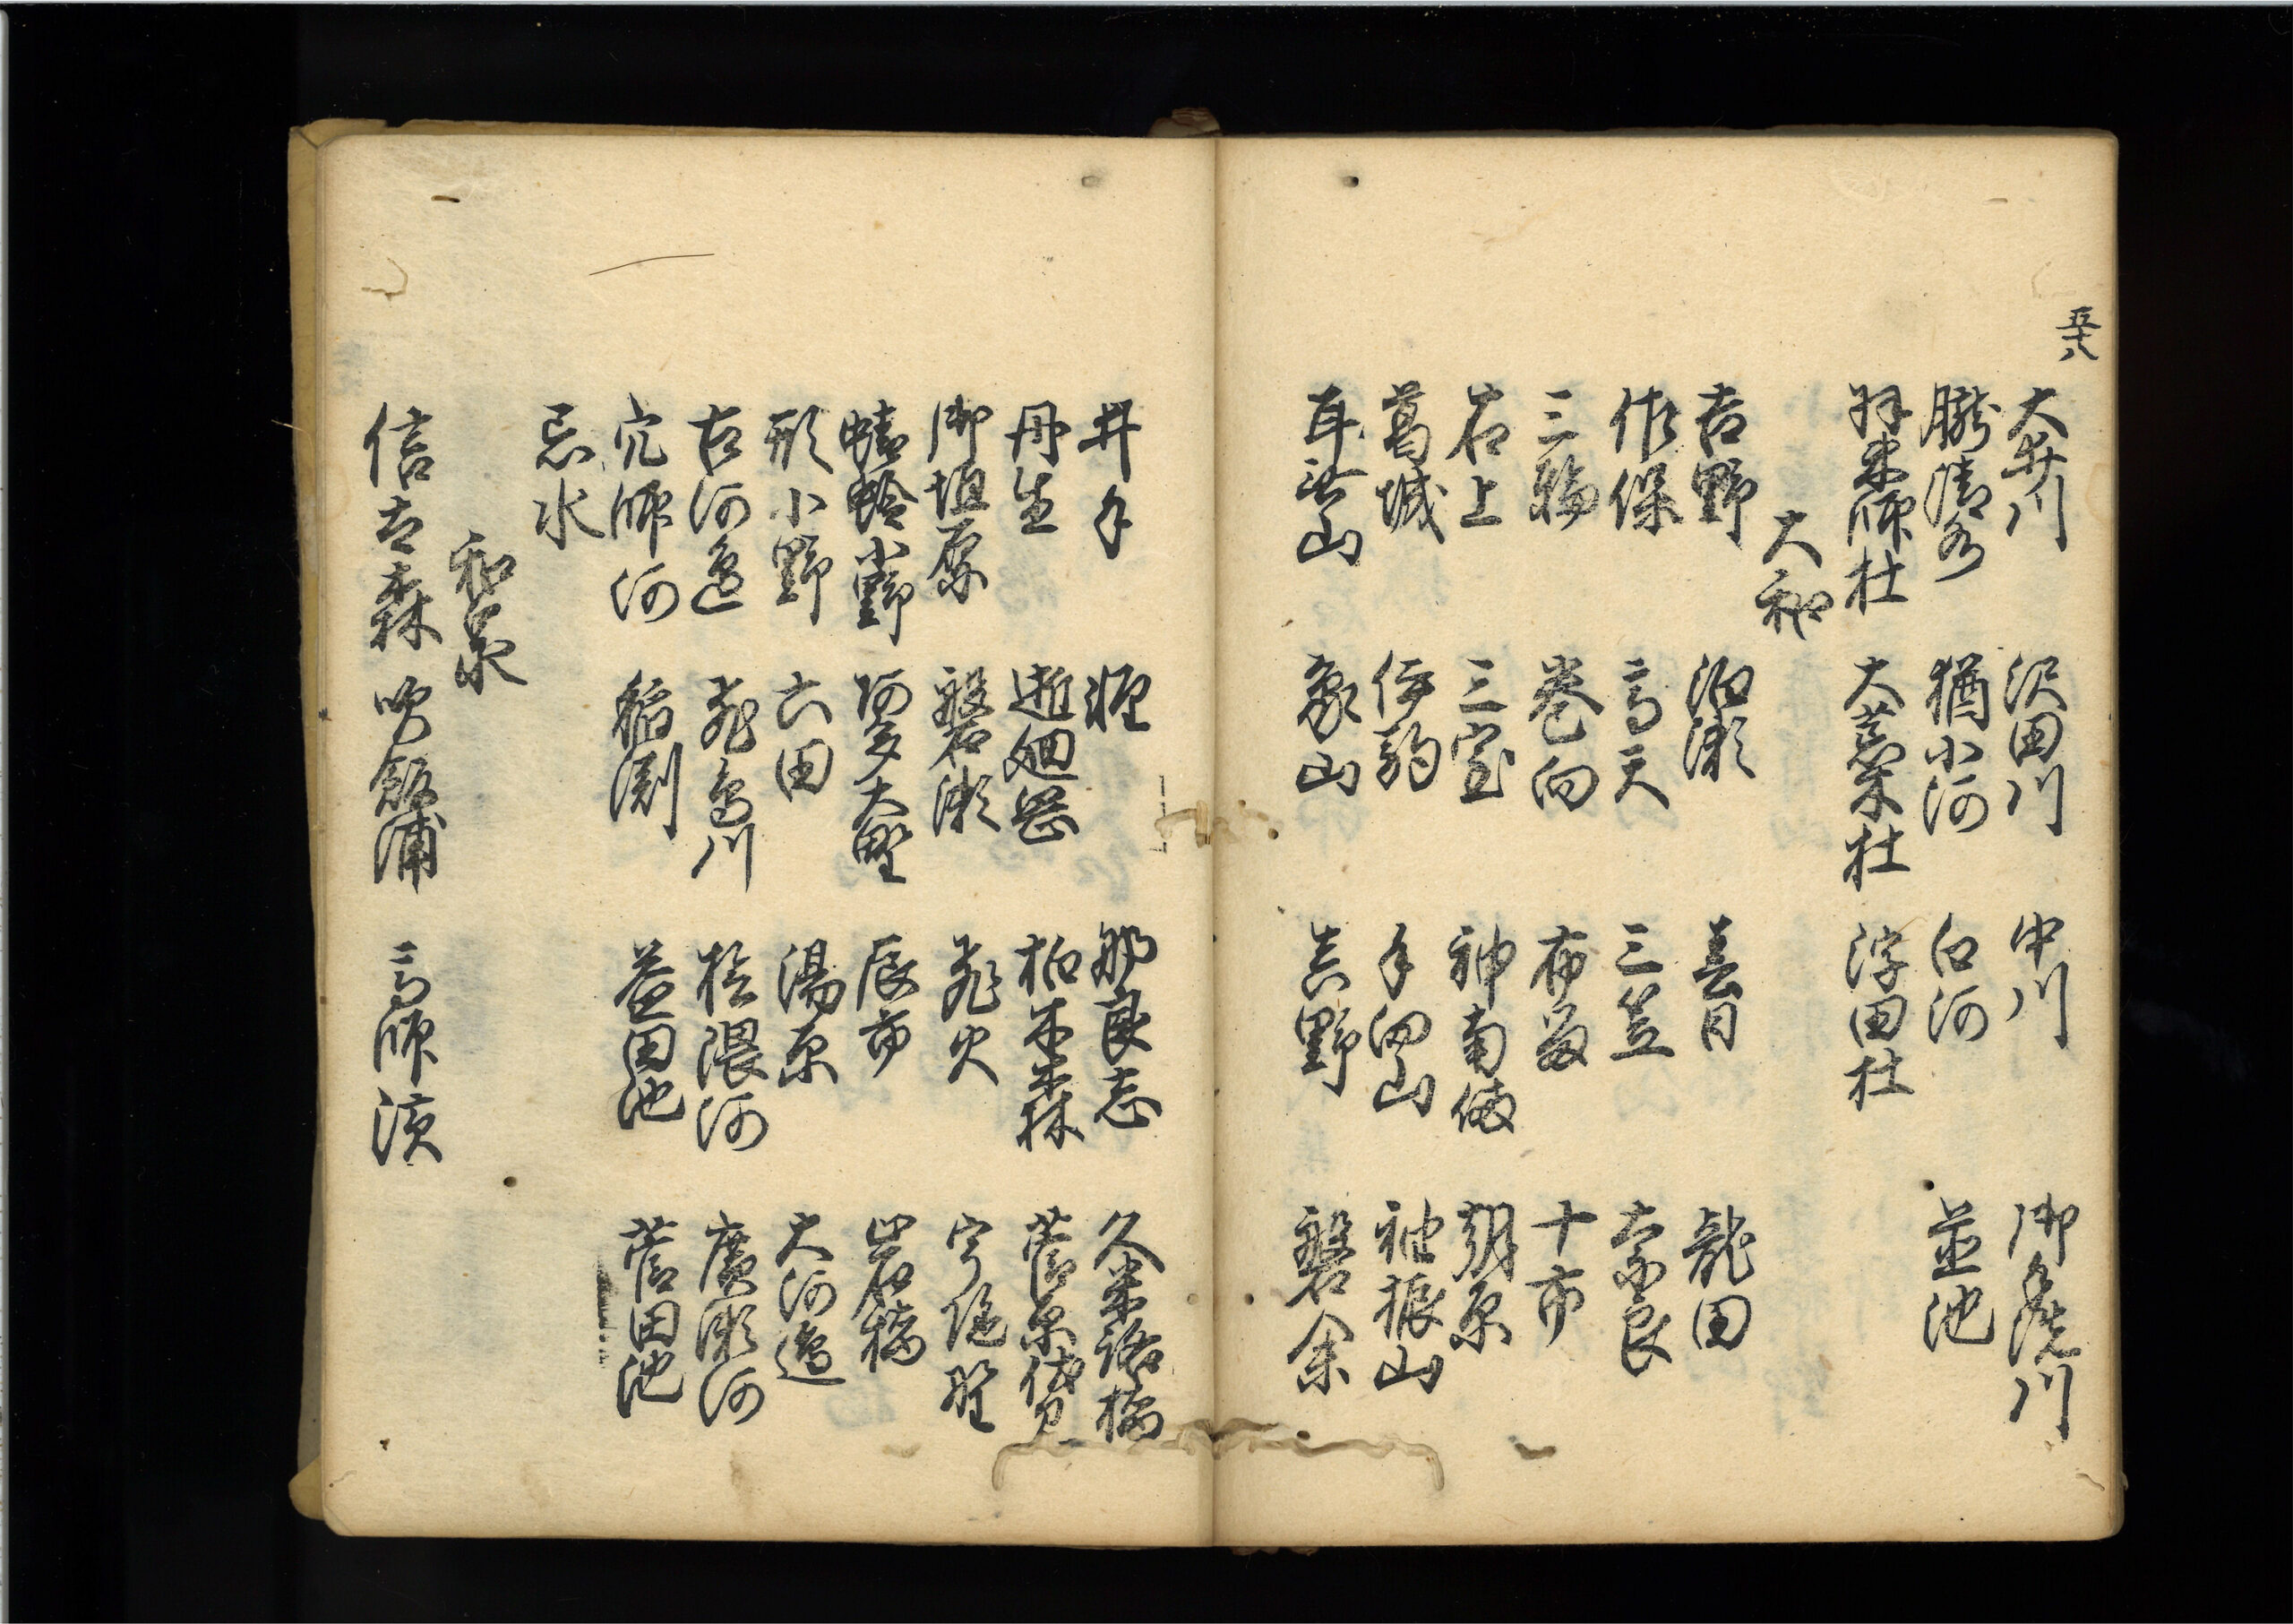 五十八
大井川 沢田川 中川 御手洗川
朧清水 猶小河 白河 並池
羽束師杜 大荒木杜 浮田杜
大和
吉野 泊瀬 春日 龍田
作保 高天 三笠 奈良
三輪 巻向 布留 十市
石上 三室 神南備 朝原
葛城 伊駒 手向山 袖振山
耳無山 象山 吉野 磐余
井手 那良志 久米路橋
丹生 逝廻岡 柏木森 菅原伏見
御垣原 磐瀬 飛火 宇陀野
蜻蛉小野 阿太大野 辰市 岩橋
形小野 六田 湯原 大河邊
古河邉 飛鳥川 桧隈河 廣瀬河
穴師河 稲渕 益田池 菅田池
忘水
和泉
信太森 吹飯浦 高師濱